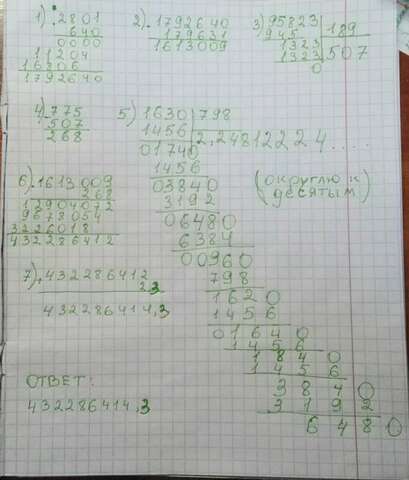 1) 2801
640
0000
11204
16806
1792640
2) 1792640
179631
1613009
3) 95823 189
945 507
1323
1323
0
4) 775
507
268
5) 1630 798
1456 2,24812224....
01740
1456
03840
3192
06480
6384
00960
798
1620
1456
01640
1456
1840
1456
3840
3192
6480
(округлю к
десятым)
6) 1613009
268
12904072
9678054
3226018
432286412
7) 432286412
2,3
432286414,3
ОТВЕТ:
432286414,3